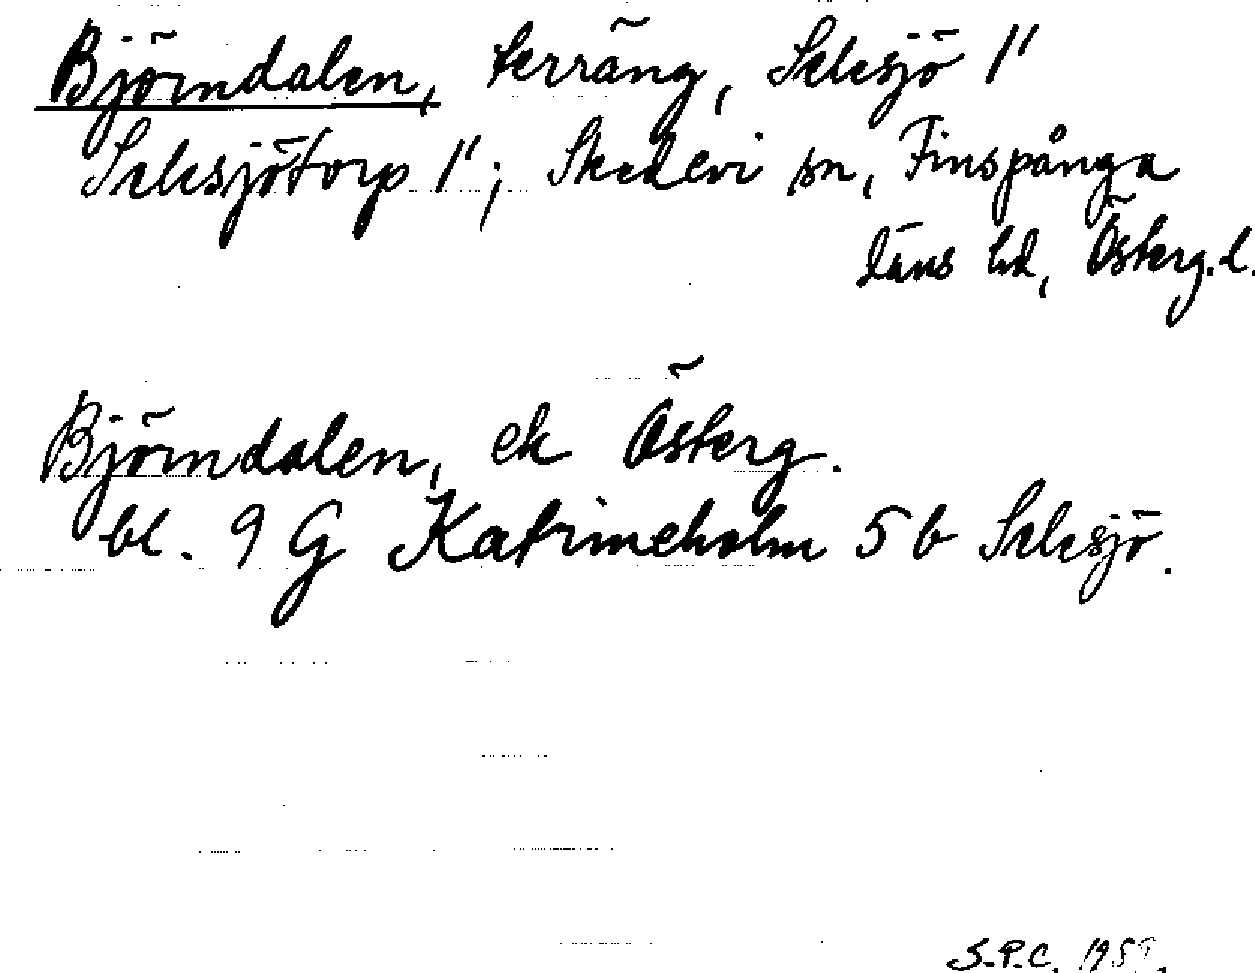 Björndalen, terräng, Selesjö 1/1
Selesjötorp 1/1; Skedevi sn, Finspånga
läns hd, Österg.l.
Björndalen, ek Österg.
bl. 9 G Katrineholm 5 b Selesjö.
S.P.C. 1959.